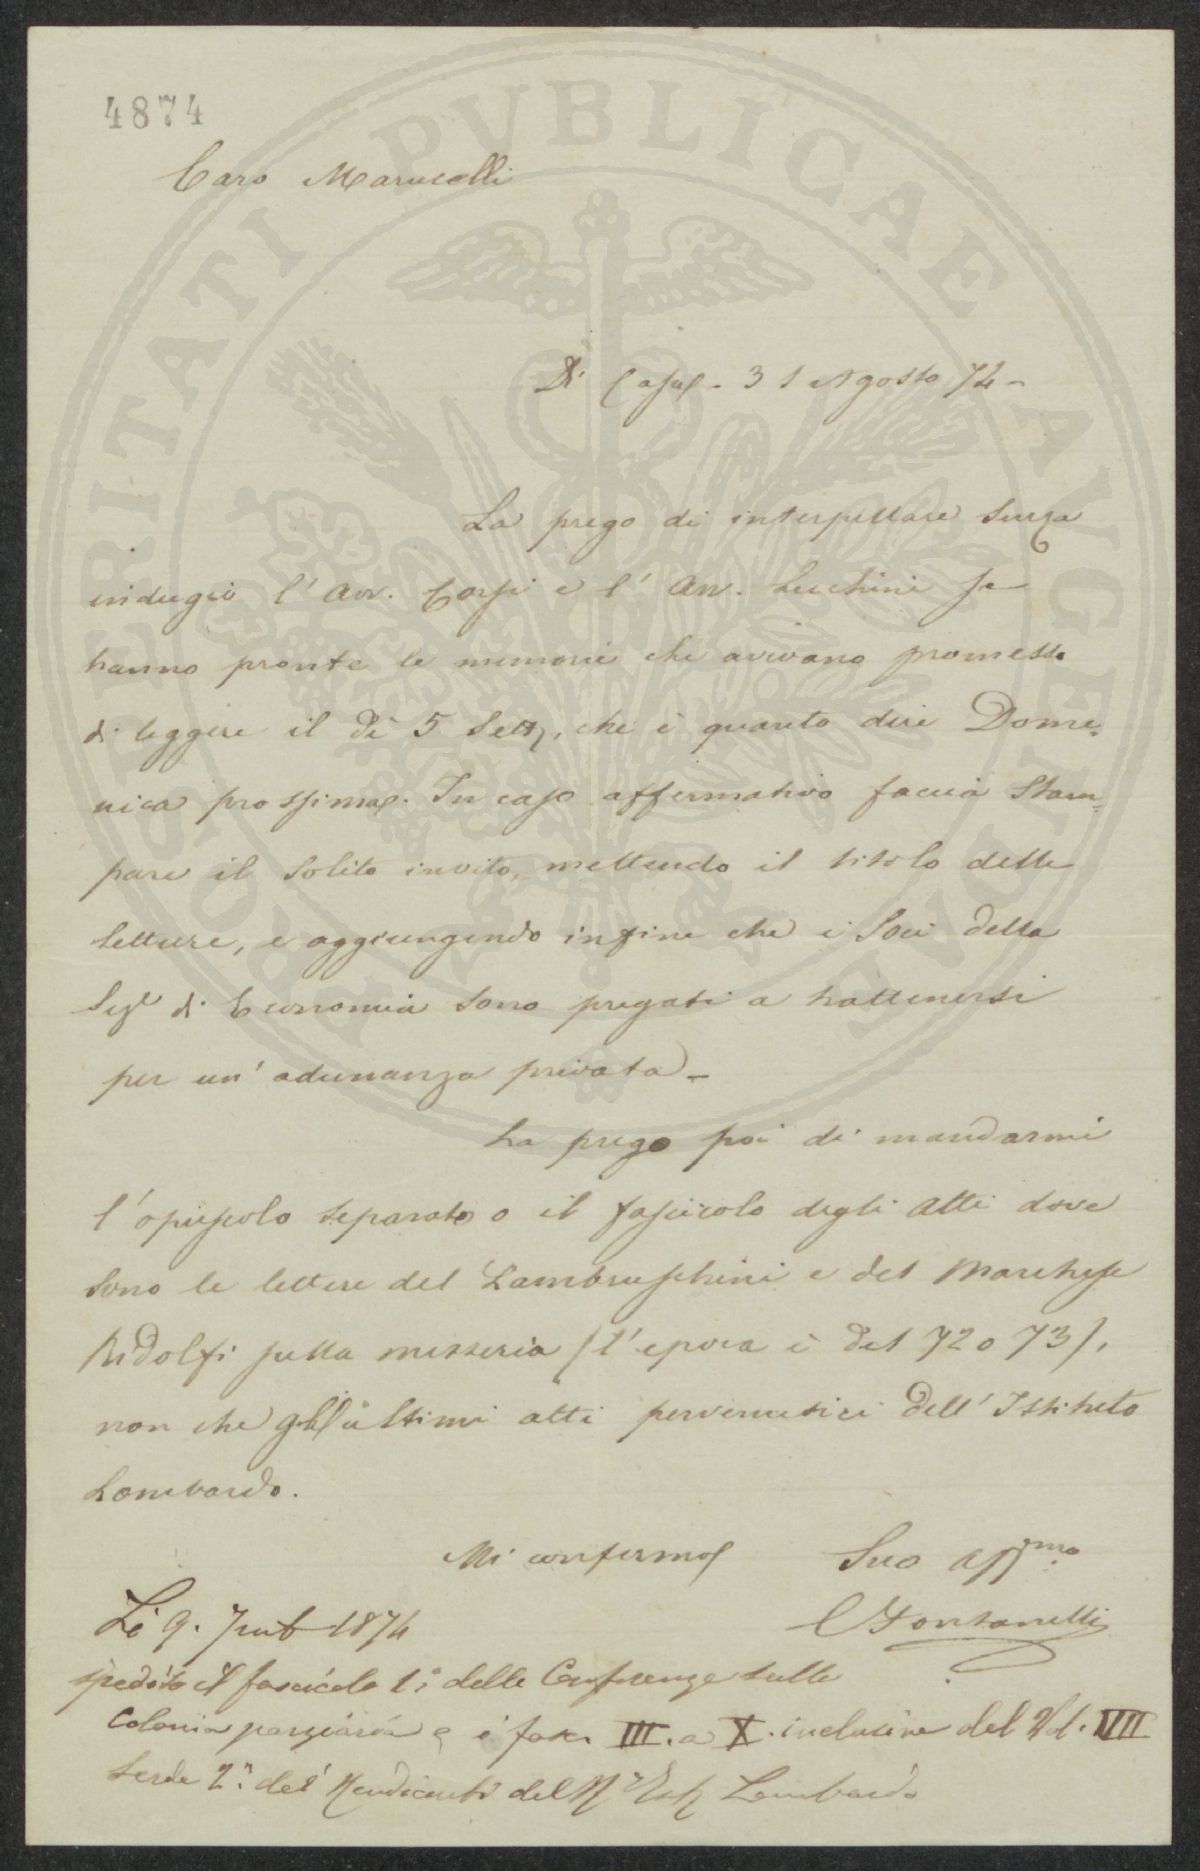 4874
Caro Marucelli
Di Casa - 31 Agosto 74 -
La prego di interpellare senza
indugio l'Avv. Corsi e l'Avv. Lucchini se
hanno pronte le memorie che avevano promesso
di leggere il dì 5 Sett., che è quanto dire Dome-
nica prossima. In caso affermativo faccia stam-
pare il solito invito, mettendo il titolo delle
letture, e aggiungendo infine che i Soci della
Sez.e di Economia sono pregati a trattenersi
per un'adunanza privata -
La prego poi di mandarmi
l'opuscolo separato o il fascicolo degli atti dove
sono le lettere del Lambruschini e del Marchese
Ridolfi sulla mezzeria (l'epoca è del 72 o 73),
non che gli ultimi atti pervenutici dell'Istituto
Lombardo.
Mi confermo Suo aff.mo
C Fontanelli
Li 9. 1874
spedito il fascicolo 1.o delle Conferenze sulla
Colonia parziaria e i fasc. III. a X. inclusive del Vol. VII
Serie 2.a dei Rendiconti del R. Ist. Lombardo
PVBLICAE